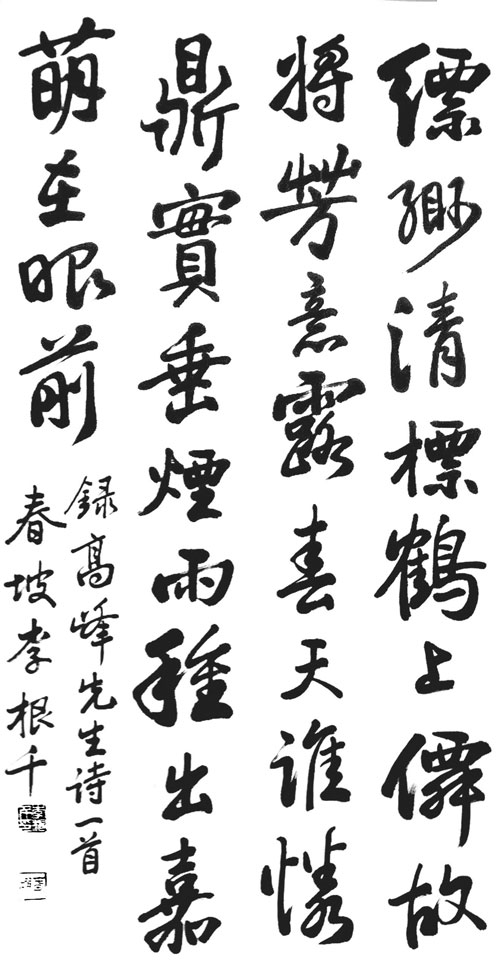 縹緲清標鶴上僊故
將芳意露春天誰憐
鼎實垂煙雨種出嘉
萌在眼前
録高峰先生诗一首
春坡李根千